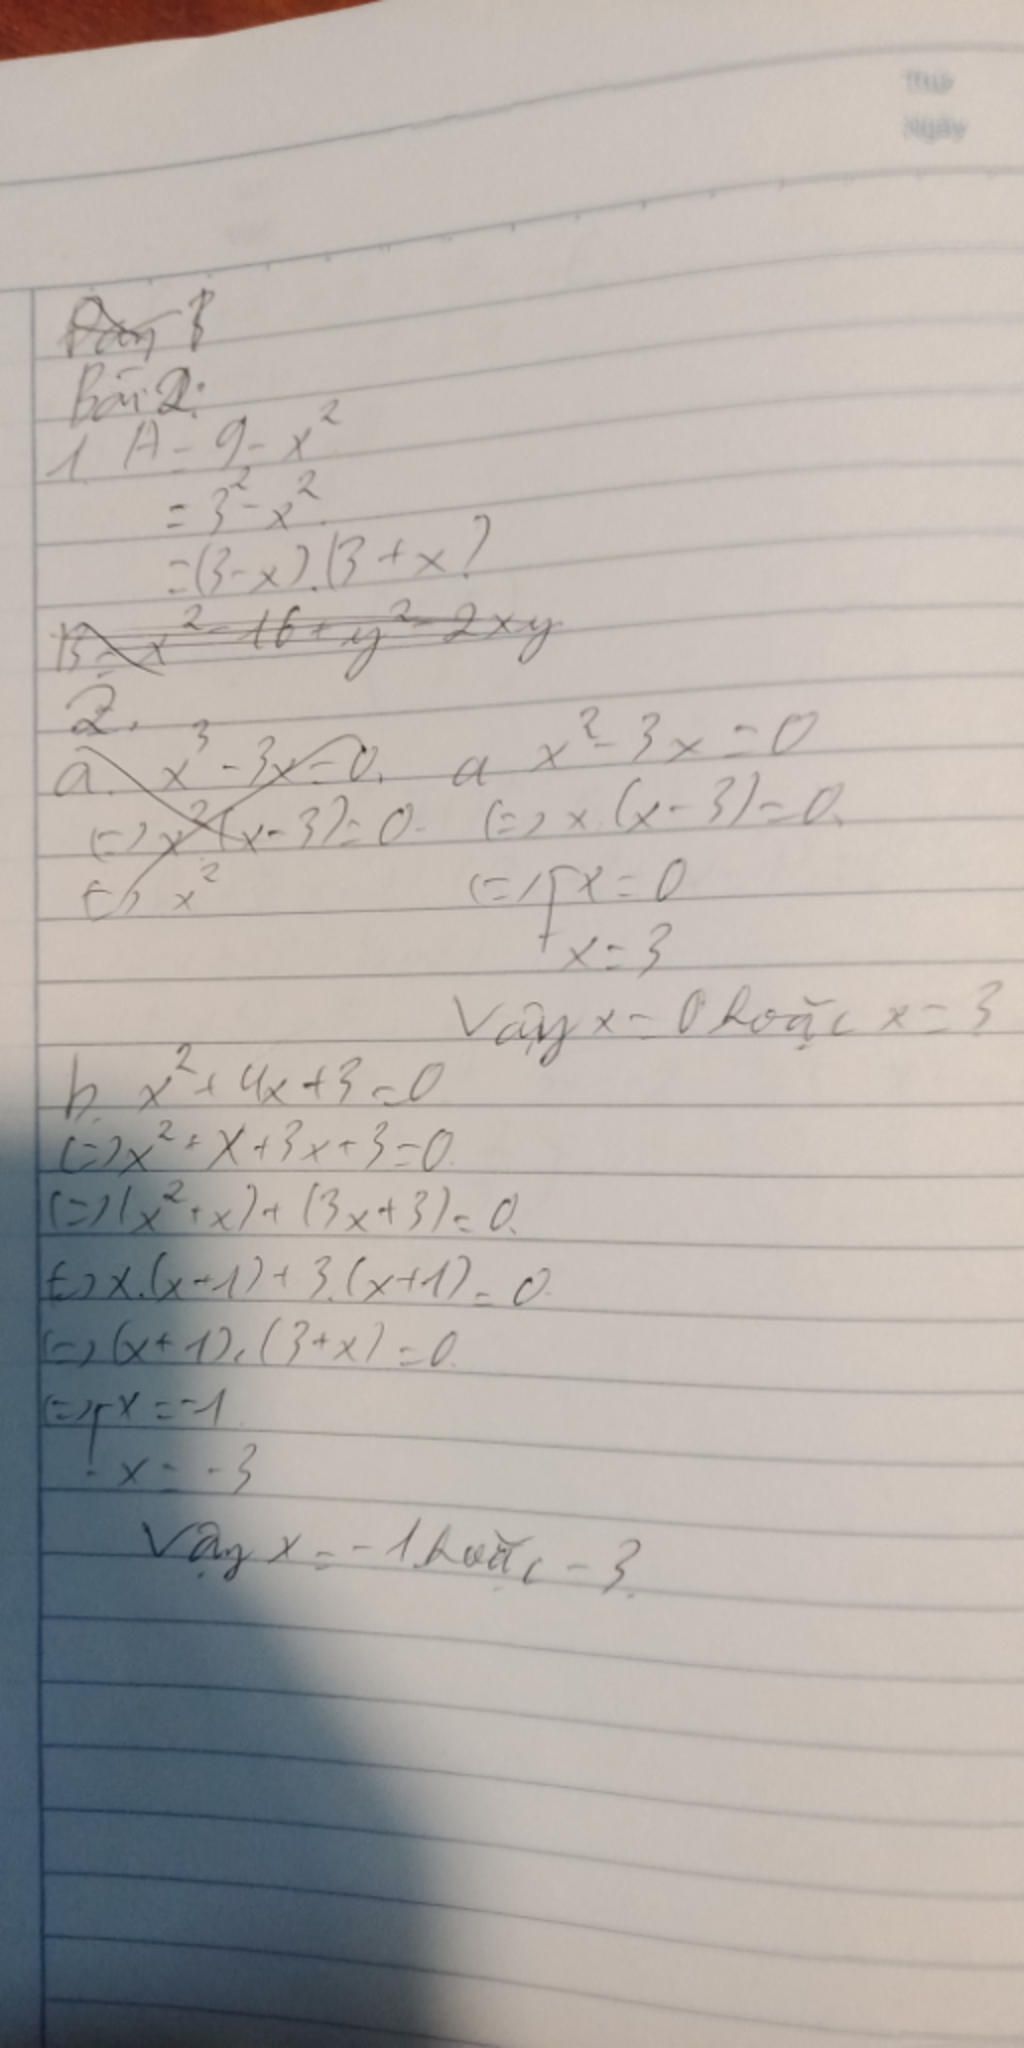 Thứ
Ngày
Bài 2:
1. A = 9 - x²
= 3² - x²
= (3 - x).(3 + x)
B = x² - 16 + y² - 2xy
2.
a. x³ - 3x = 0.
(=) x²(x - 3) = 0.
(=) x²
a x² - 3x = 0
(=) x.(x - 3) = 0.
(=) [x = 0
x = 3
Vậy x = 0 hoặc x = 3
b. x² + 4x + 3 = 0
(=) x² + x + 3x + 3 = 0.
(=) (x² + x) + (3x + 3) = 0.
(=) x.(x + 1) + 3.(x + 1) = 0.
(=) (x + 1).(3 + x) = 0.
(=) [x = -1
x = -3
Vậy x = -1 hoặc -3.